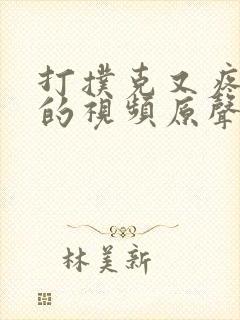 打撲克又疼
的視頻原聲
林美新